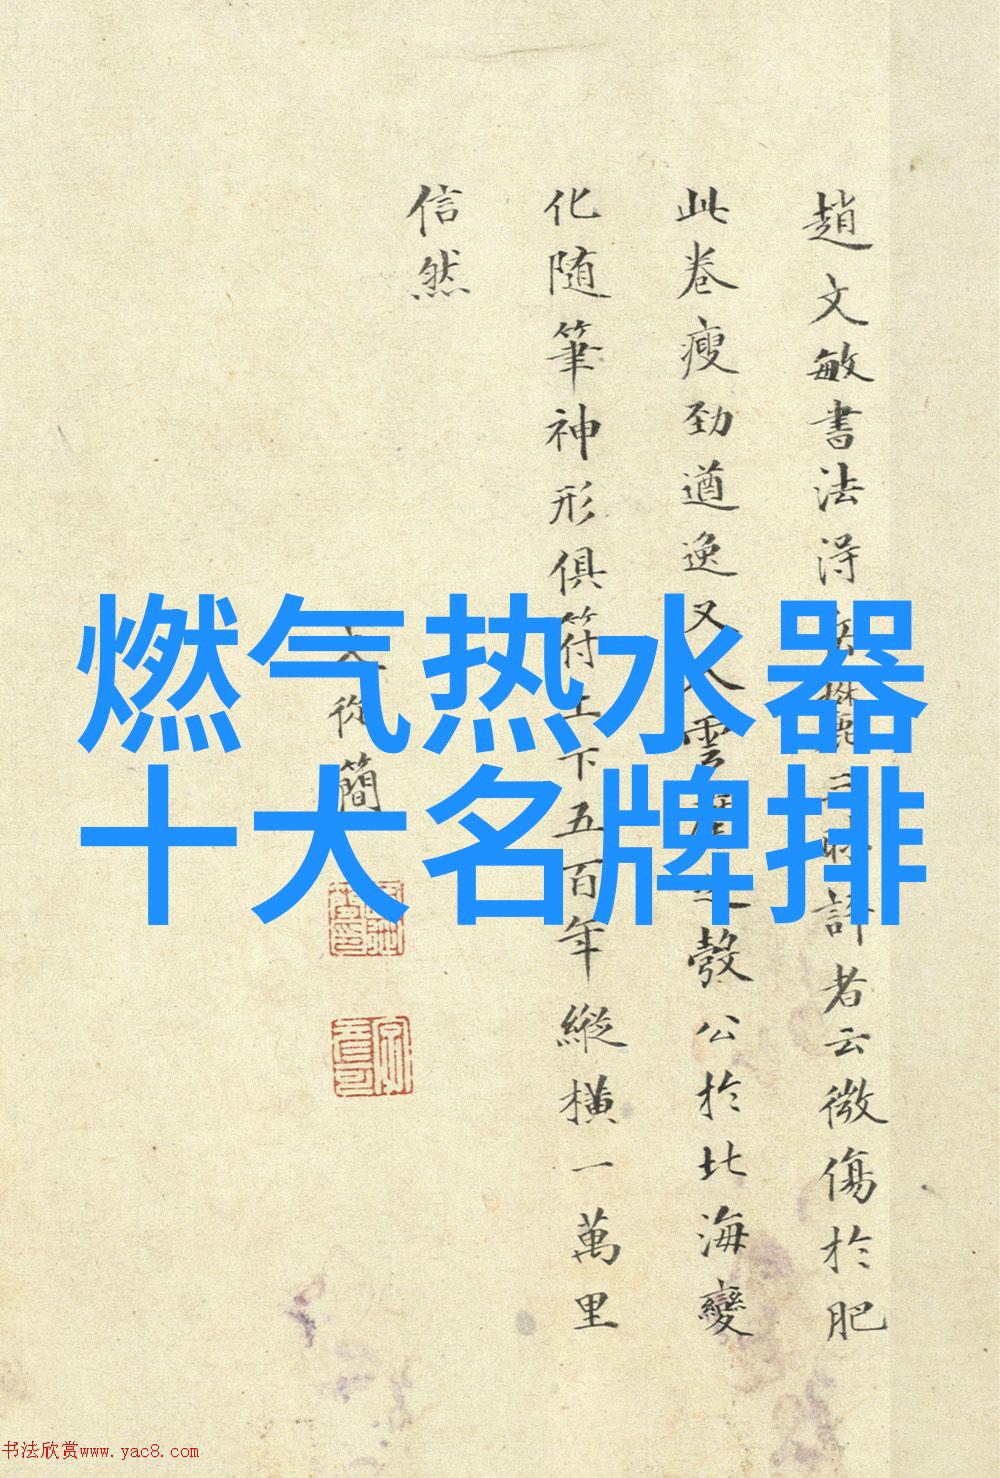 燃气热水器
十大名牌排
趙文敏書法淂麗評者云微傷於肥
此卷瘦劲遒逸又入雲麾之彀公於北海變
化随筆神形俱符上下五百年縱橫一萬里
信然
文從簡
书法欣赏www.yac8.com